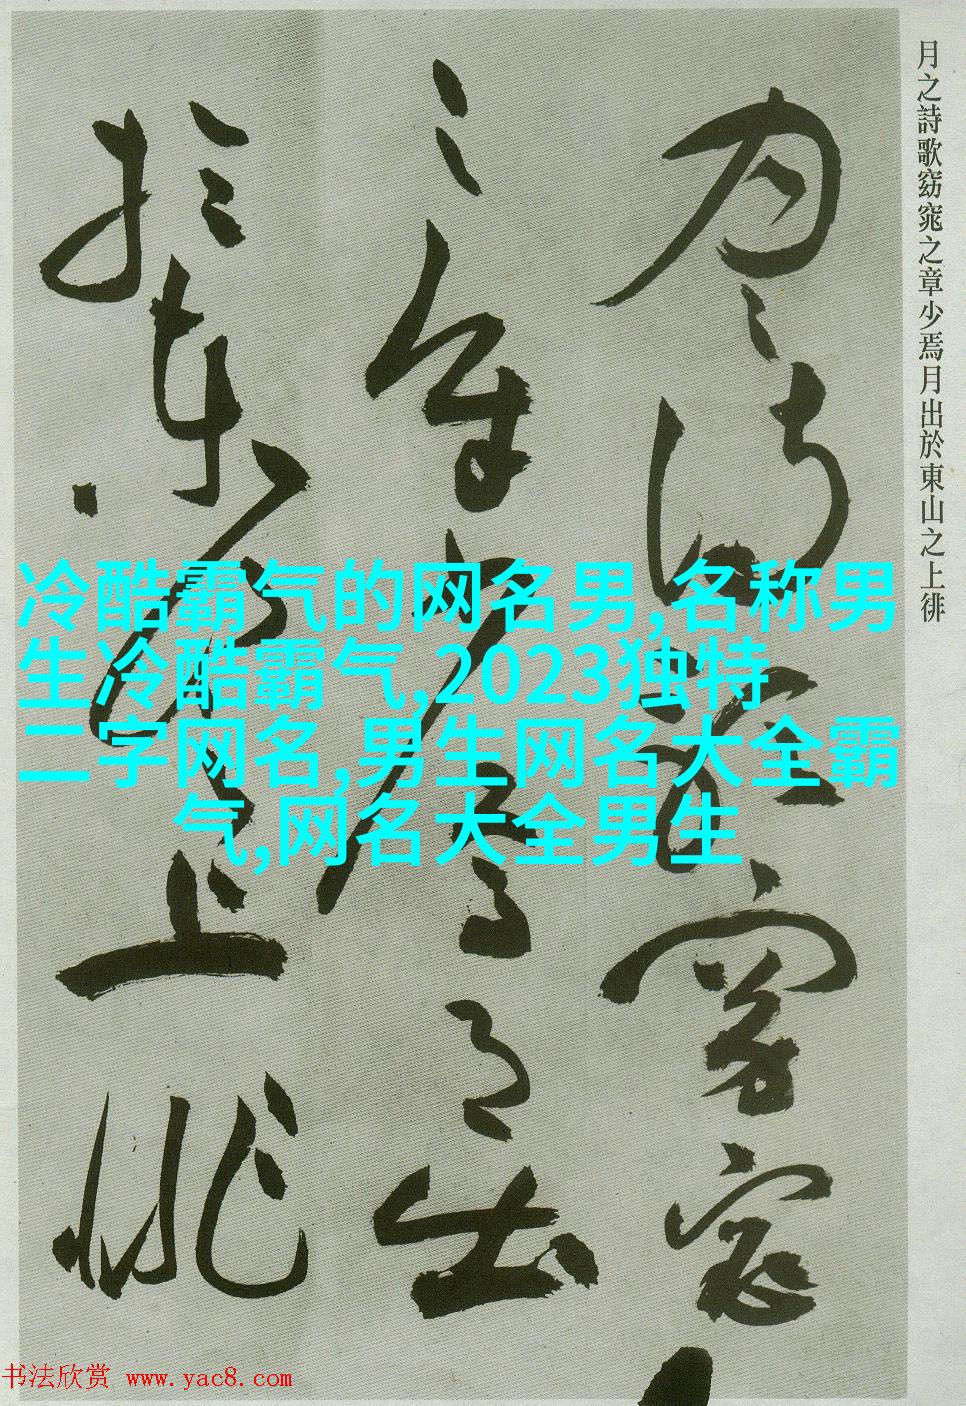 月之詩歌窈窕之章少焉月出於東山之上徘
月之詩歌窈窕
之章少焉月出
於東山之上徘
冷酷霸气的网名男,名称男
生冷酷霸气,2023独特
二字网名,男生网名大全霸
气,网名大全男生
书法欣赏 www.yac8.com